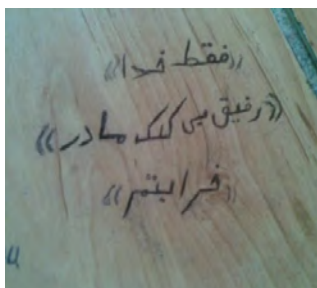 «فقط خدا»
«رفیق بی کلک مادر»
«خرابتم»